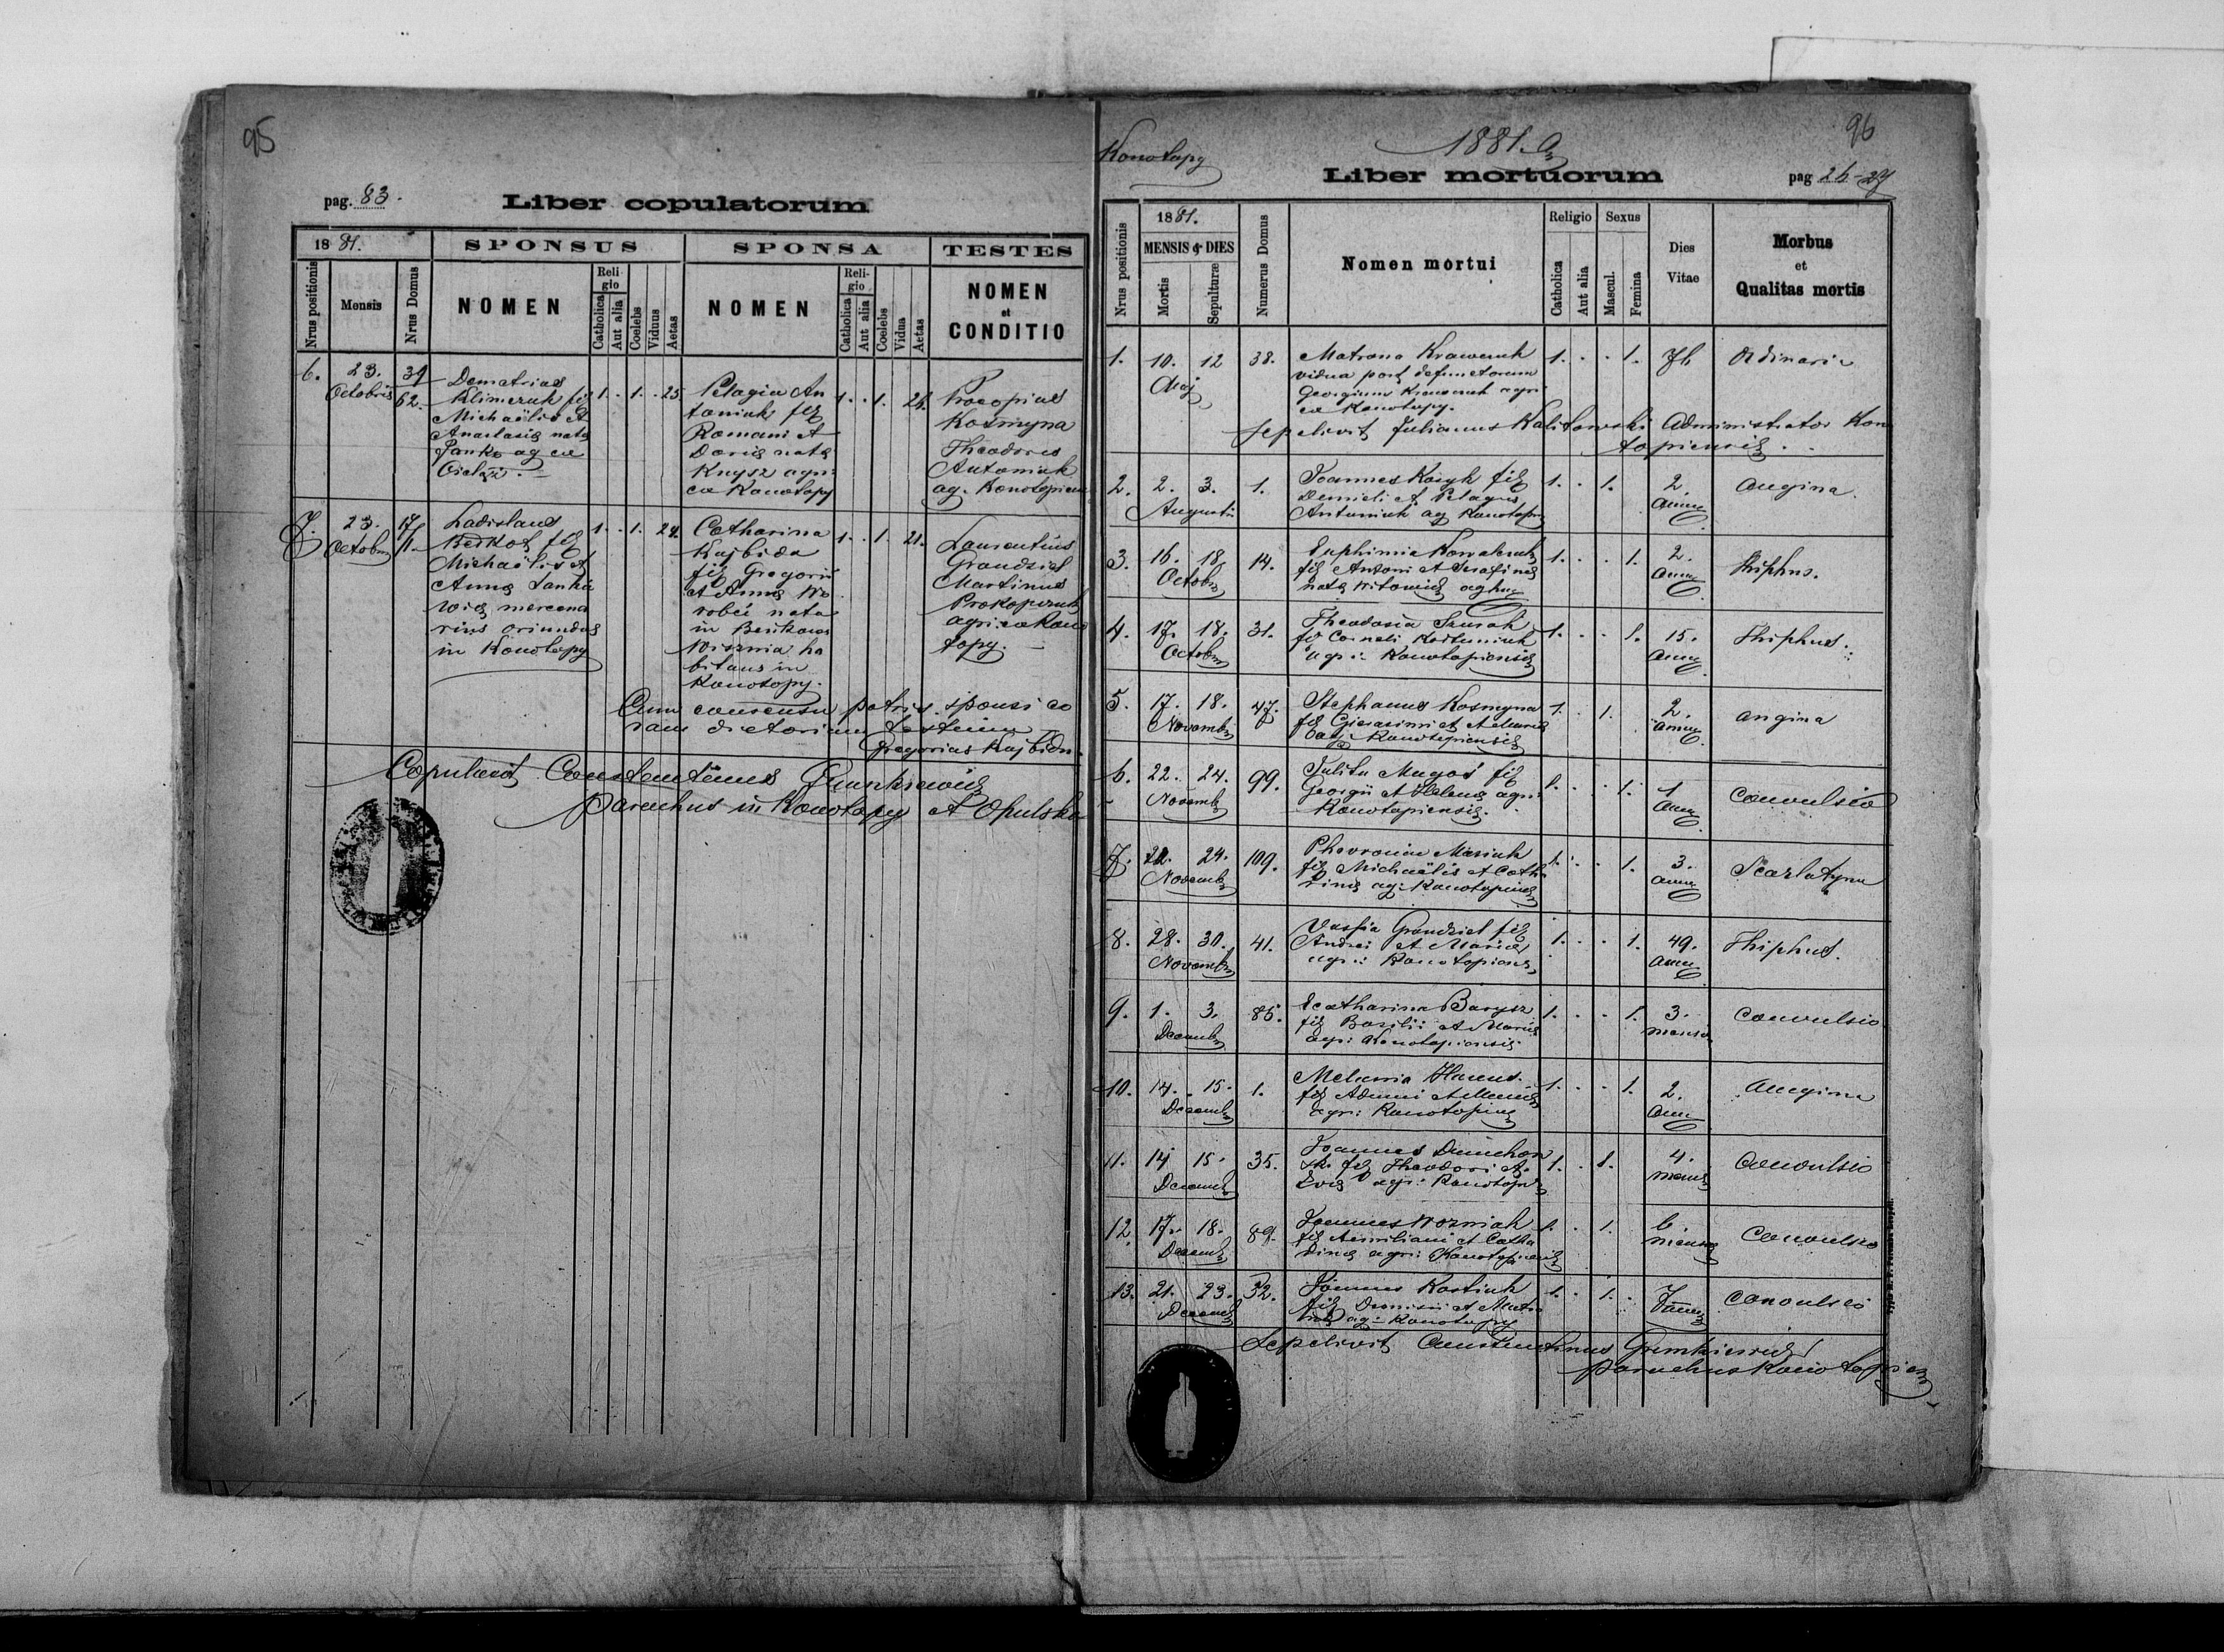 95
pag. 83.
Liber copulatorum
18 81.
SPONSUS
SPONSA
TESTES
Nrus positionis
Mensis
Nrus Domus
NOMEN
Religio
Catholica
Aut alia
Coelebs
Viduus
Aetas
NOMEN
Religio
Catholica
Aut alia
Coelebs
Vidua
Aetas
NOMEN
et
CONDITIO
6. 23. Octobris
62.
Demetrius
Klimczuk fil
Michaëlis et
Anastasiae natae
Panko ag ex
1. . 1. . 25
Pelagia An
toniuk fil
Romani et
Dariae natae
Knysz agri
ex Konotopy
1. . 1. .
Procopius
Kosmyna
Theodorus
Antoniuk
ag. Konotopien
7. 23. Octobris
17
Ladislaus
fil
Michaëlis et
Annae Janke
wicz mercena
rius oriundus
in Konotopy
1. . 1. . 24.
Catharina
Kajbida
fil Gregorii
et Annae Wo
robei nata
in
Wisznia ha
bitans in
Konotopy.
1. . 1. . 21.
Laurentius
Grandziel
Martinus
Prokopczuk
agri. ex Kono
topy.
Cum consensu patris sponsi co
ram testium
Gregorius Kajbida
Copulavit Constantinus
parochus in Konotopy et Opulsko
Konotopy
1881. a
96
Liber mortuorum
pag 26-27
Nrus positionis
1881.
MENSIS & DIES
Mortis
Sepulturæ
Numerus Domus
Nomen mortui
Religio
Catholica
Aut alia
Sexus
Mascul.
Femina
Dies
Vitae
Morbus
et
Qualitas mortis
1. 10. 12 Maj 38.
Matrona Krawczuk
vidua post defunctorum
Georgium Krawczuk agri
ex Konotopy.
1. . . 1. 76 Ordinaria
Sepelivit Julianus Kalitowski Administrator Kono
topiensis.
2. 2. 3. Augusti 1.
Joannes Kozyk fil
Danieli et Pelagiae
Antoniuk ag Konotopy
1. . 1. 2 anno angina.
3. 16. 18. Octobr 14.
Euphimia Kowalczuk
fil Antoni et Serafinae
natae Witowicz ag
1. . . 1. 2. anno thiphus.
4. 17. 18. Octobr 31.
Theodosia
fil Corneli
agr: Konotopiensis
1. . . 1. 15. anno Thiphus.
5. 17. 18. Novembr 47.
Stephanus Kosmyna
fil Gierasimi et Mariae
ag: Konotopiensis
1. . 1. 2. anno angina
6. 22. 24. Novemb 99.
Julita Mugoś fil
Georgii et Helenae agri:
Konotopiensis.
1. . . 1. 1 anno convulsio
7. 22. 24. Novemb 109.
Phevronia Masiuk
fil Michaëlis et Catha
rinae ag: Konotopiens
1. . . 1. 3. anno Scarlatyna
8. 28. 30. Novemb 41.
Vassa Grandziel fil
Andrei et Mariae
agr: Konotopiens
1. . . 1. 49. anno Thiphus.
9. 1. 3. Decemb 85.
Ecatharina Barysz
fil Bazilii et Mariae
agr: Konotopiensis
1. . . 1. 3. mensis convulsio
10. 14. 15. Decemb 1.
Melania
fil Adami et Mariae
agri: Konotopiens
1. . . 1. 2. ann angina
11. 14 15. Decemb 35.
Joannes
fil Theodori et
Evae agr: Konotopi
1. . 1. 4. mensis convulsio
12. 17. 18. Decemb 89.
Joannes Wozniak
fil Aemiliani et Catha
rinae agri: Konotopiensis
1. . 1. 6. mensis convulsio
13. 21. 23. Decemb 32.
Joannes Kostiuk
fil Dionisii et
ag: Konotopy
1. . 1. convulsio
Sepelivit Constantinus
parochus Konotopiens